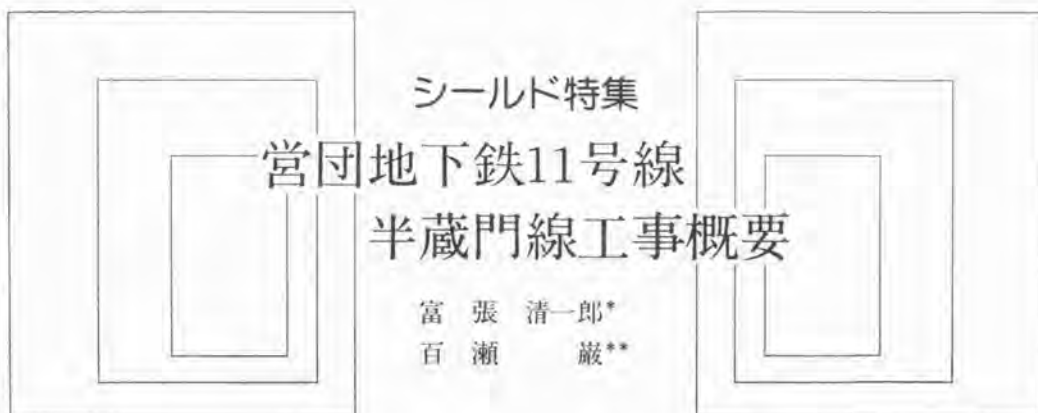 シールド特集
営団地下鉄11号線
半蔵門線工事概要
富張清一郎*
百瀬巌**